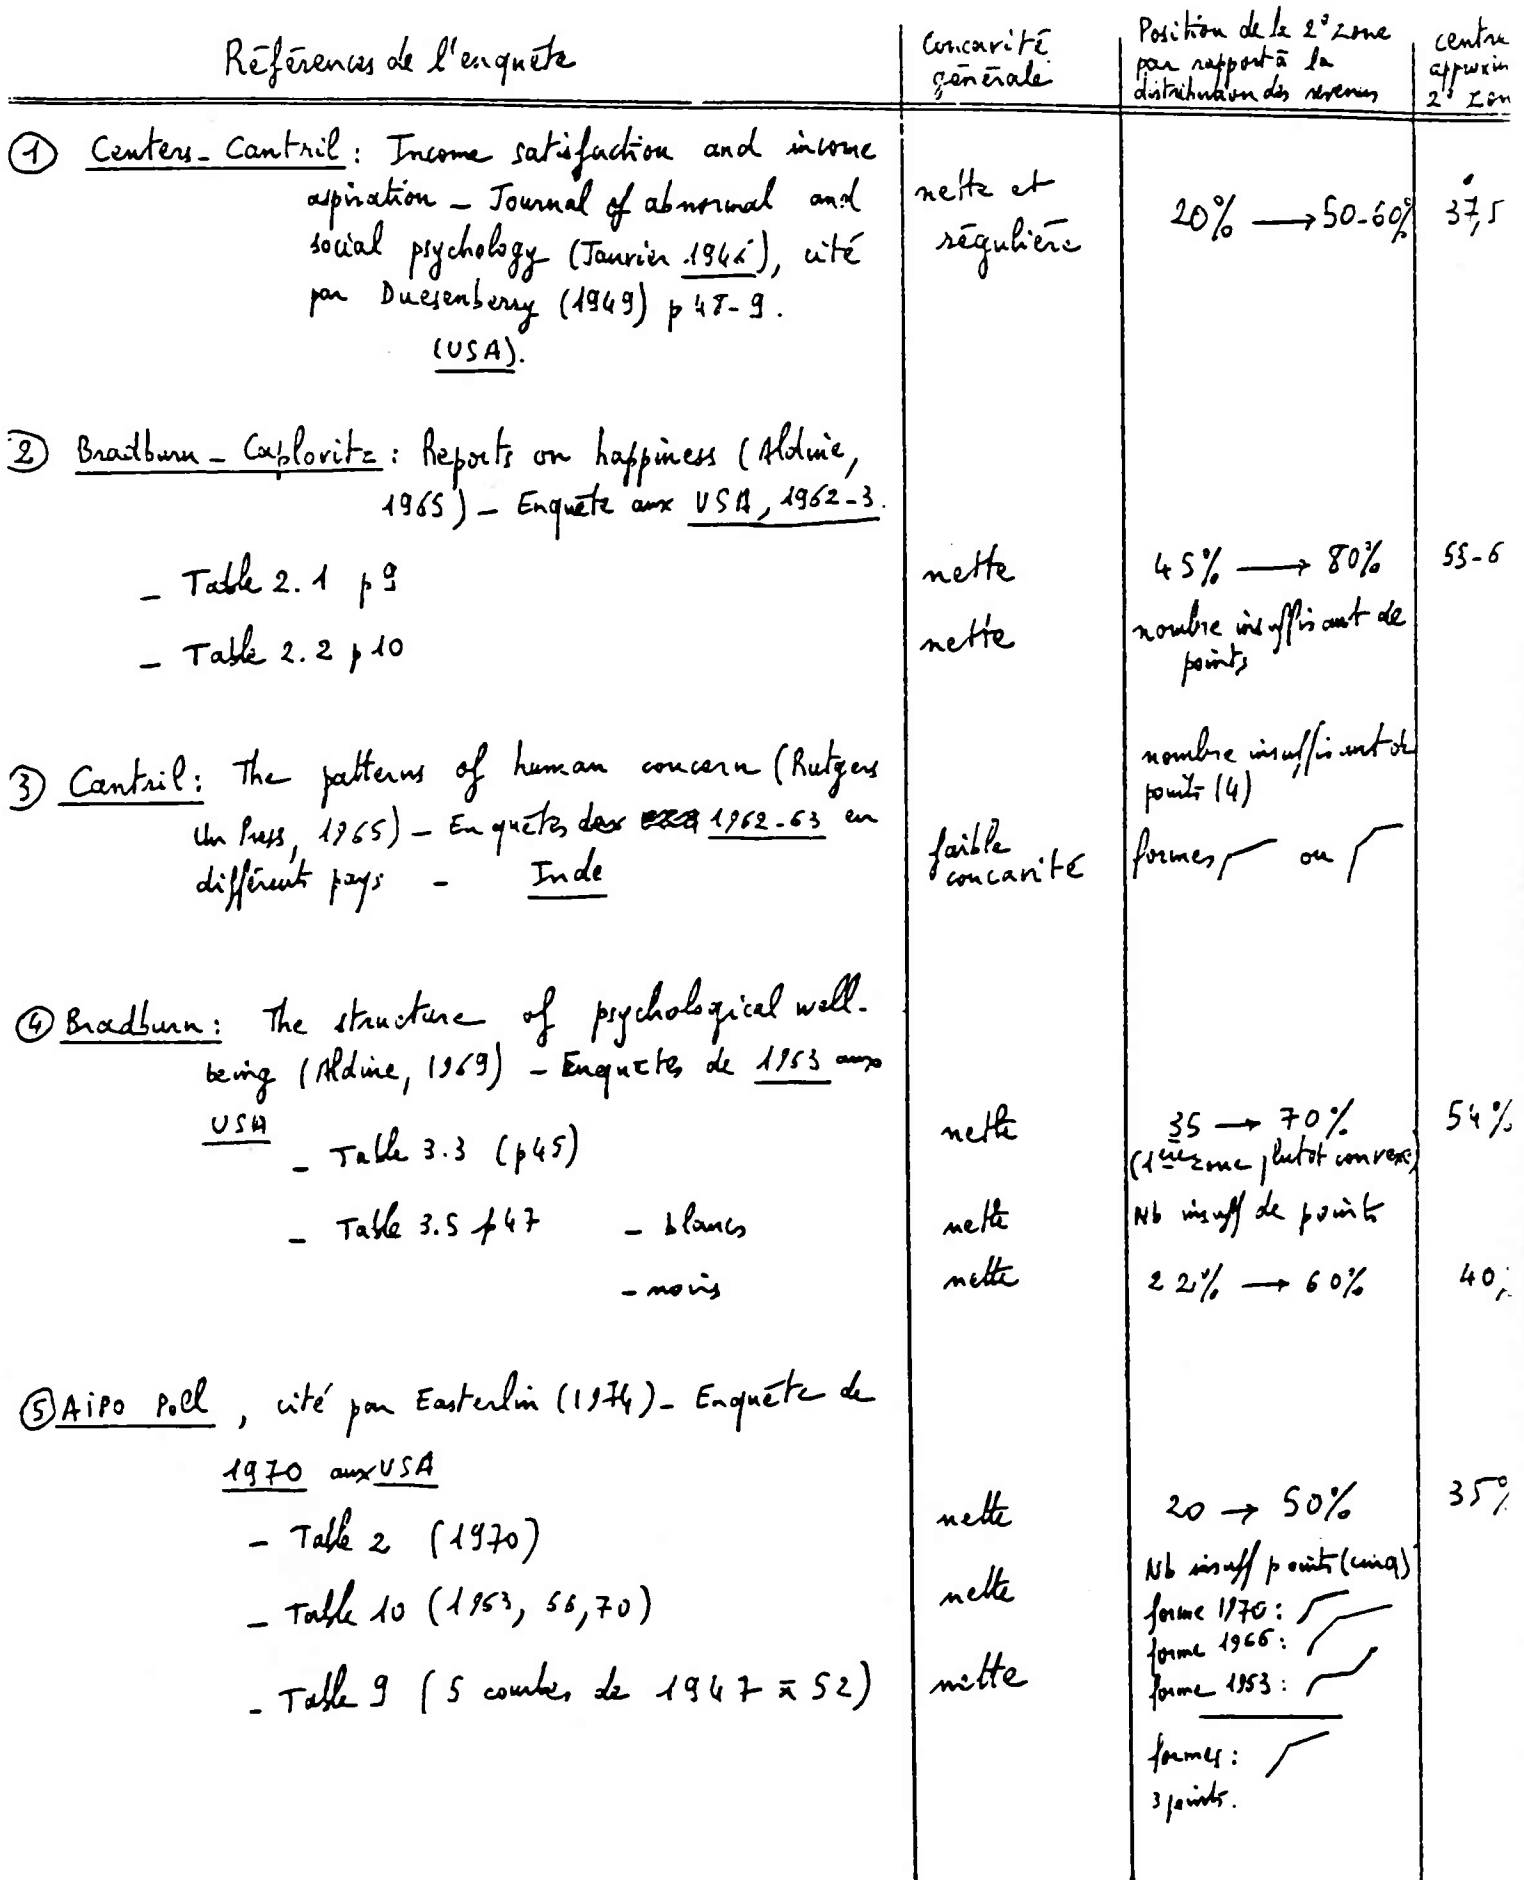 Références de l'enquête
Concavité générale
Position de la 2° zone par rapport à la distribution des revenus
centre approxim 2° zon
① Centers-Cantril : Income satisfaction and income
aspiration – Journal of abnormal and
social psychology (Janvier 1946), cité
par Duesenberry (1949) p 48-9.
(USA).
nette et
régulière
20% → 50-60%
37,5
② Bradburn – Caplovitz : Reports on happiness (Aldine,
1965) – Enquête aux USA, 1962-3.
– Table 2.1 p9
nette
45% → 80%
55-6
– Table 2.2 p10
nette
nombre insuffisant de
points
③ Cantril : The patterns of human concern (Rutgers
Un Press, 1965) – Enquêtes 1962-63 en
différents pays – Inde
faible
concavité
nombre insuffisant de
points (4)
formes ou
④ Bradburn : The structure of psychological well-
being (Aldine, 1969) – Enquêtes de 1963 aux
USA
– Table 3.3 (p45)
nette
35 → 70%
(1ère zone plutot convexe)
54%
– Table 3.5 p47 – blancs
nette
Nb insuff de points
– noirs
nette
22% → 60%
40,
⑤ AIPO Poll, cité par Easterlin (1974) – Enquête de
1970 aux USA
– Table 2 (1970)
nette
20 → 50%
35%
– Table 10 (1963, 66, 70)
nette
Nb insuff points (cinq)
forme 1970 :
forme 1966 :
forme 1963 :
– Table 9 (5 courbes de 1947 à 52)
nette
formes :
3 points.